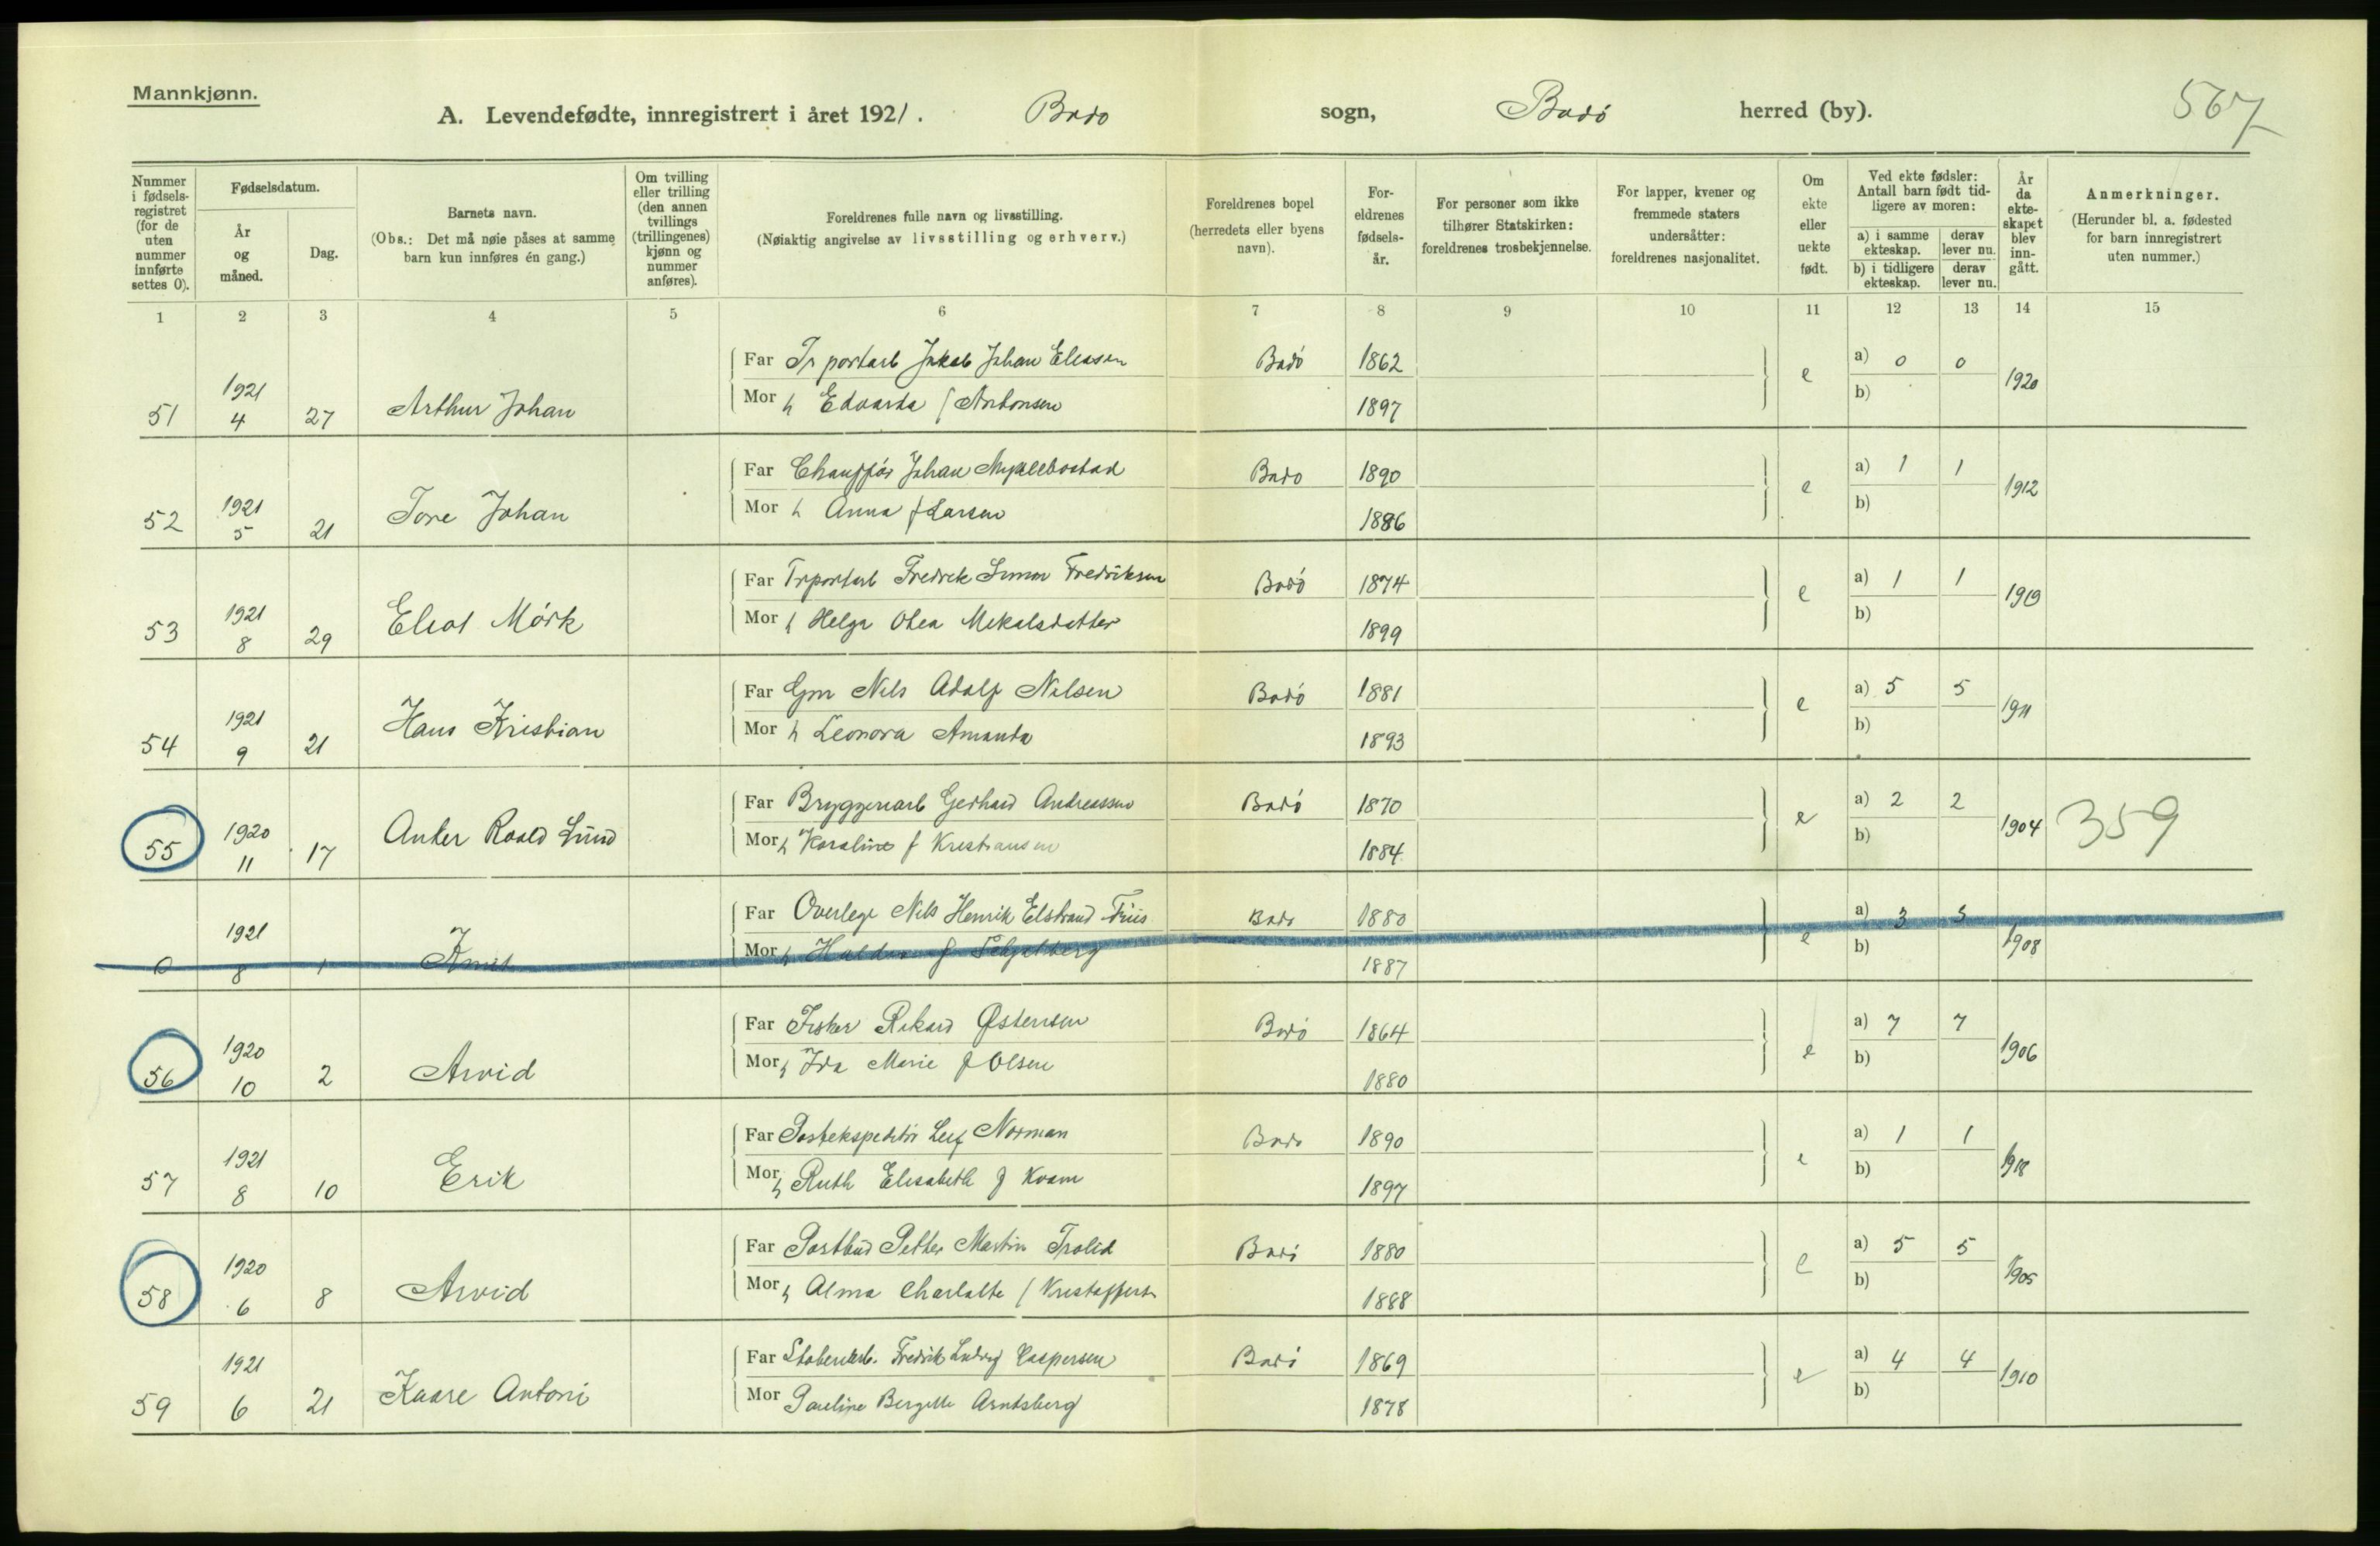 Mannkjønn.
A. Levendefødte, innregistrert i året 1921. Bodo sogn, Bodö herred (by). 567
Nummer i fødsels-registret (for de uten nummer innførte settes 0).
Fødselsdatum.
År og måned.
Dag.
Barnets navn.
(Obs.: Det må nøie påses at samme barn kun innføres én gang.)
Om tvilling eller trilling (den annen tvillings (trillingenes) kjønn og nummer anføres).
Foreldrenes fulle navn og livsstilling.
(Nøiaktig angivelse av livsstilling og erhverv.)
Foreldrenes bopel (herredets eller byens navn).
For-eldrenes fødsels-år.
For personer som ikke tilhører Statskirken: foreldrenes trosbekjennelse.
For lapper, kvener og fremmede staters undersåtter: foreldrenes nasjonalitet.
Om ekte eller uekte født.
Ved ekte fødsler: Antall barn født tid-ligere av moren:
a) i samme ekteskap.
derav lever nu.
b) i tidligere ekteskap.
derav lever nu.
År da ekte-skapet blev inn-gått.
Anmerkninger.
(Herunder bl. a. fødested for barn innregistrert uten nummer.)
1 2 3 4 5 6 7 8 9 10 11 12 13 14 15
Far Johan Eliassen Bodö 1862 a) 0 0
51 1921 4 27 Arthur Johan Mor h Edvarda f Antonsen 1897 e b) 1920
Far Chauffør Johan Myklebostad Bodo 1890 a) 1 1
52 1921 5 21 Tore Johan Mor h Anna f Larsen 1886 e b) 1912
Far Fredrik Fredriksen Bodö 1874 a) 1 1
53 1921 8 29 Mörk Mor h Helga Othea Mikalsdatter 1899 e b) 1919
Far Nils Adolf Nilsen Bodö 1881 a) 5 5
54 1921 9 21 Hans Kristian Mor h Leonora Amanda 1893 e b) 1911
Far Bryggeriarb Gerhard Andreassen Bodö 1870 a) 2 2
55 1920 11 17 Anker Roald Lund Mor h Karoline f Kristiansen 1884 e b) 1904 359
Far Overlege Nils Henrik Elstrand Friis Bodo 1880 a) 3 3
0 1921 8 1 Knut Mor h f 1887 e b) 1908
Far Fisker Rikard Østensen Bodö 1864 a) 7 7
56 1920 10 2 Arvid Mor h Ida Marie f Olsen 1880 e b) 1906
Far Postekspeditör Leif Norman Bodo 1890 a) 1 1
57 1921 8 10 Erik Mor h Ruth Elisabeth f Kvam 1897 e b) 1918
Far Postbud Petter Martin Trolid Bodö 1880 a) 5 5
58 1920 6 8 Arvid Mor h Alma Charlotte f 1888 e b) 1905
Far Fredrik Ludvig Caspersen Bodö 1869 a) 4 4
59 1921 6 21 Kaare Antoni Mor Pauline Bergitte Arntsberg 1878 e b) 1910